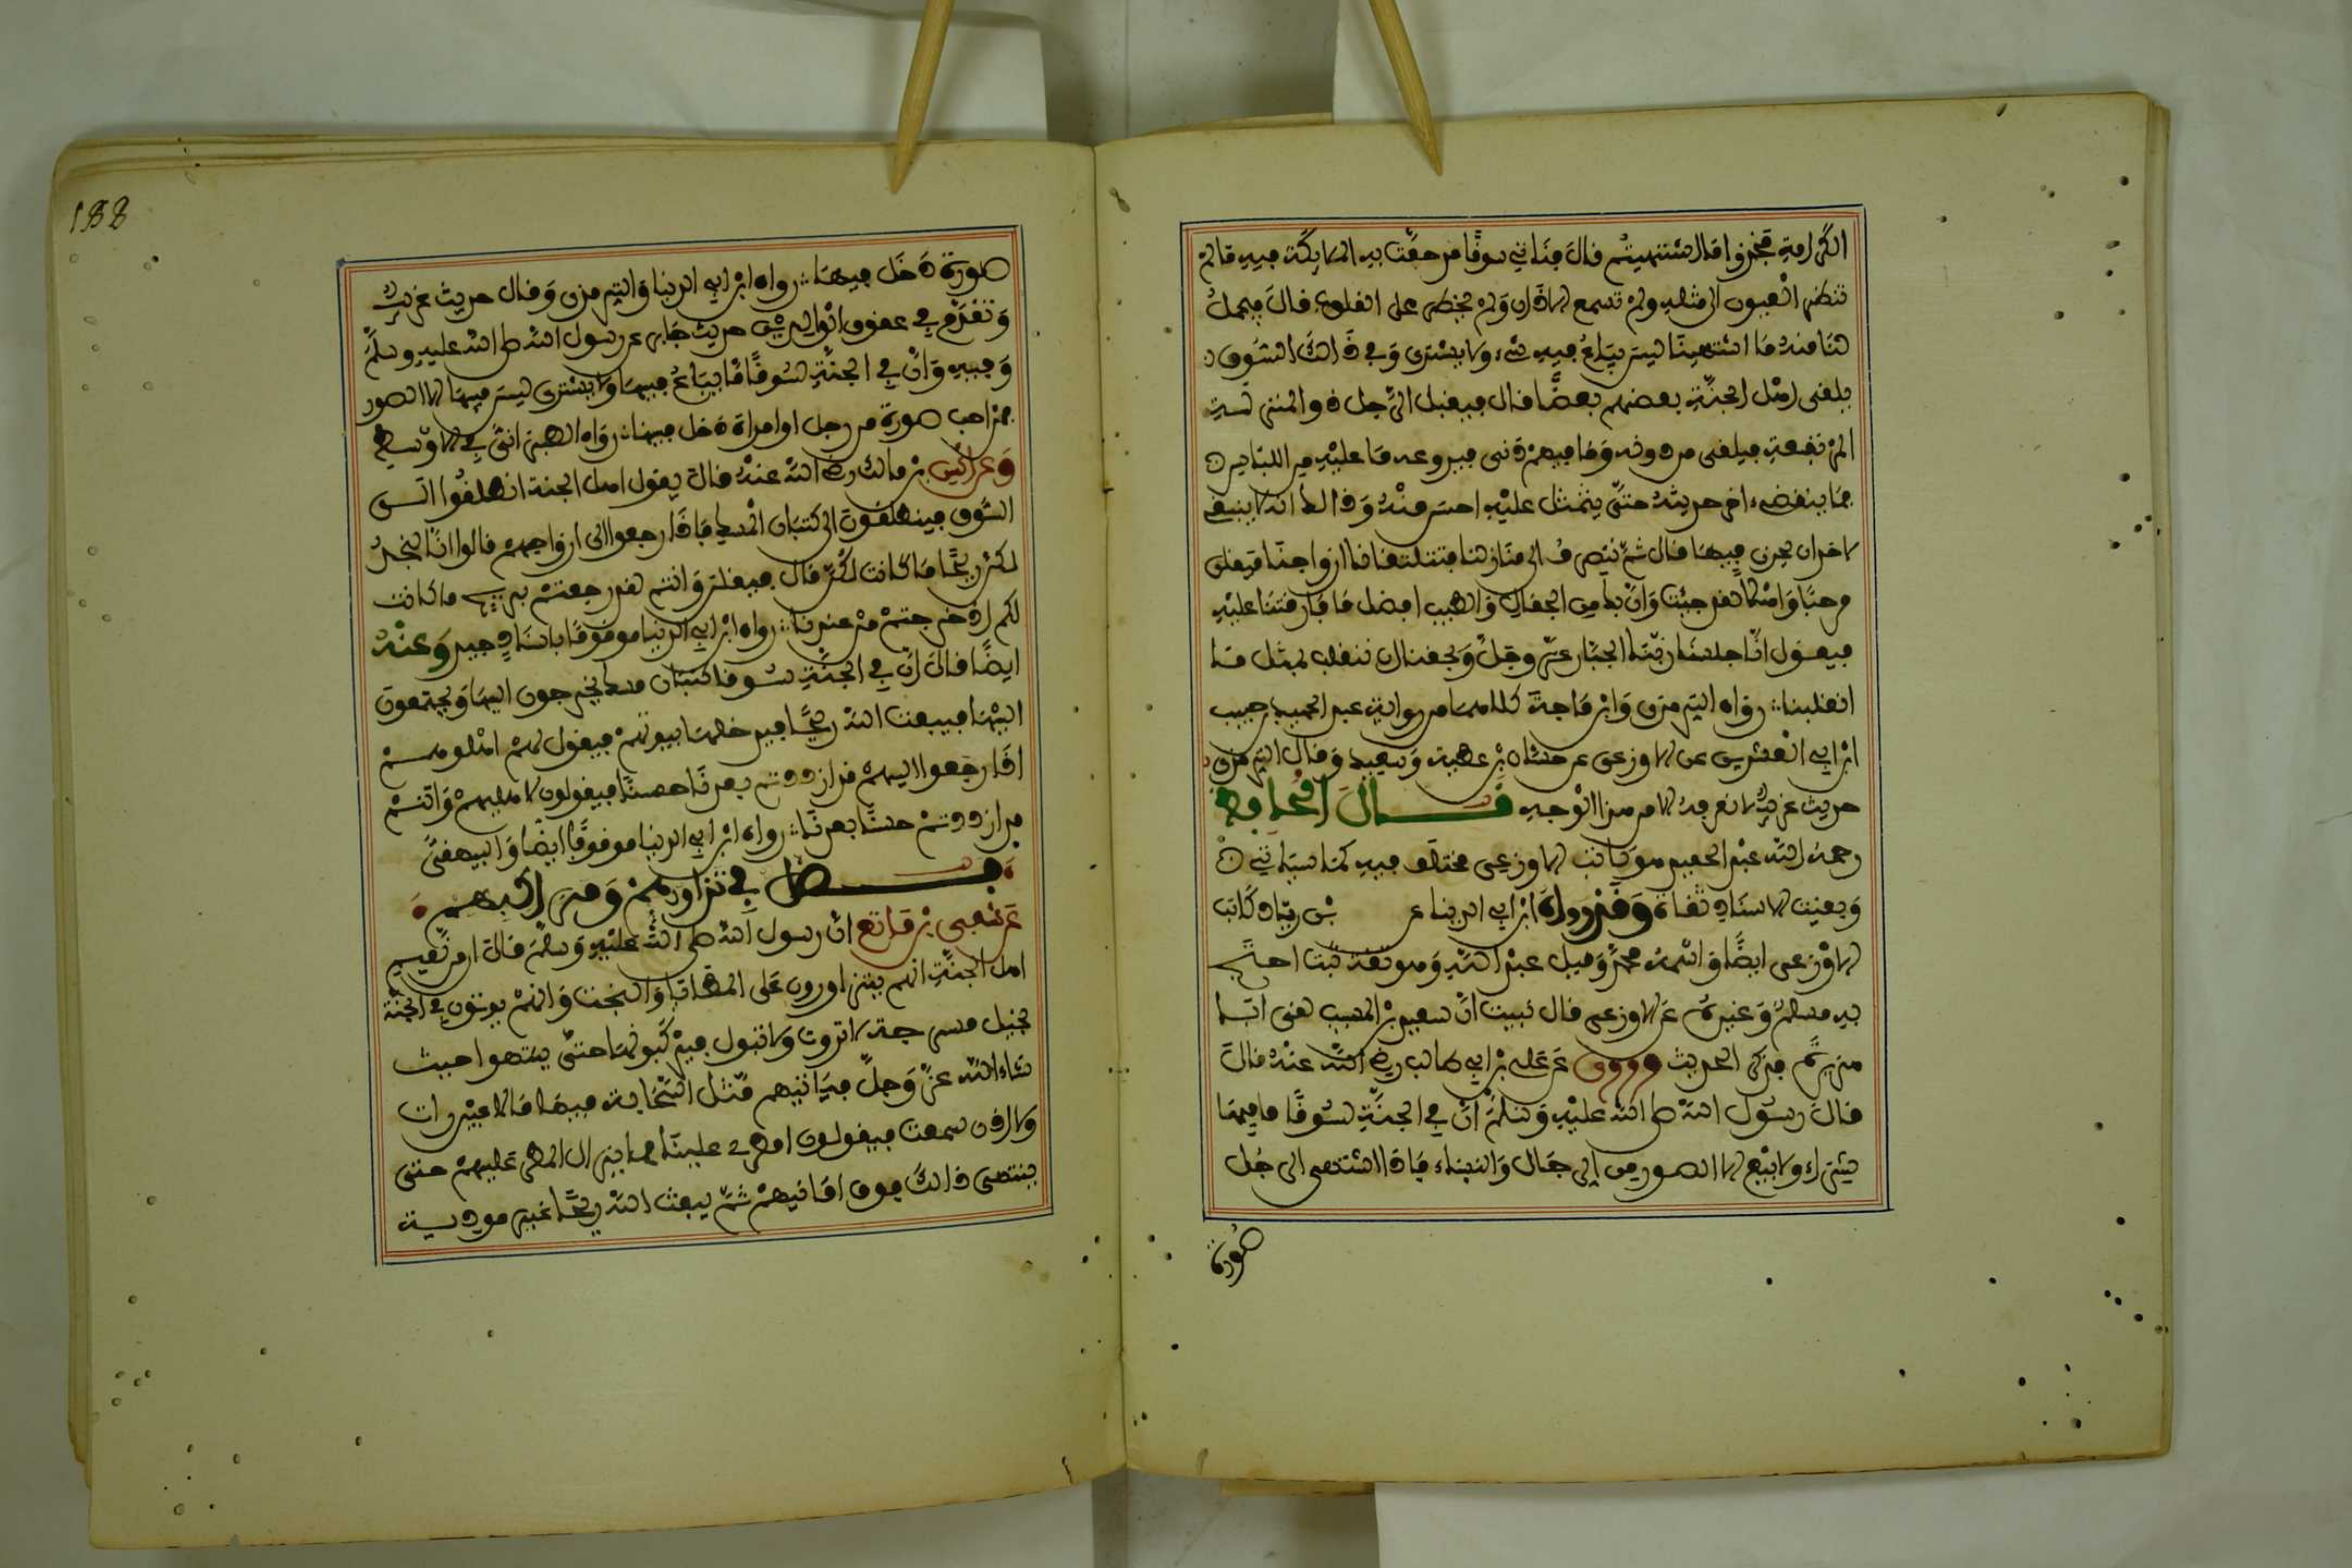 الكرامة فخذوا ما اشتهيتم قال فناتي سوقا قد حفت به الملايكة فيه ما لم
تنظر العيون الى مثله ولم تسمع الاذان ولم يخطر على القلوب قال فيحمل
لنا منه ما اشتهينا ليس يباع فيه شيء ولا يشترى وفي ذالك السوق
يلقى اهل الجنة بعضهم بعضا قال فيقبل الرجل ذو المنزلة
المرتفعة فيلقى من دونه وما فيهم دنى فيروعه ما عليه من اللباس
فما ينقضي اخر حديثه حتى يتمثل عليه احسن منه وذالك انه لا ينبغي
لاحد ان يحزن فيها قال ثم ننصرف الى منازلنا فتتلقانا ازواجنا فيقلن
مرحبا واهلا لقد جئت وان بك من الجمال والطيب افضل مما فارقتنا عليه
فيقول انا جالسنا ربنا الجبار عز وجل ويحقنا ان ننقلب بمثل ما
انقلبنا رواه الترمذي وابن ماجة كلاهما من رواية عبد الحميد بن حبيب
ابن ابي العشرين عن الاوزعي عن حسان بن عطية وسعيد وقال الترمذي
حديث غريب لا نعرفه الا من هذا الوجه قال الحافظ
رحمه الله عبد الحميد هو كاتب الاوزعي مختلف فيه كما سياتي
وبقيت الاسناد ثقاة وقد رواه ابن ابي الدنيا عن بن زياد كاتب
الاوزعي ايضا واسمه محمد وقيل عبد الله وهو ثقة ثبت احتج
به مسلم وغيره عن الاوزعي قال نبيت ان سعيد بن المسيب لقي ابا
هريرة فذكر الحديث وروى عن علي بن ابي طالب رضي الله عنه قال
قال رسول الله صلى الله عليه وسلم ان في الجنة لسوقا ما فيها
شراء ولا بيع الا الصور من الرجال والنساء فاذا اشتهى الرجل
صورة
188
صورة دخل فيها رواه ابن ابي الدنيا والترمذي وقال حديث غريب
وتقدم في عقوق الوالدين حديث جابر عن رسول الله صلى الله عليه وسلم
وفيه وان في الجنة لسوقا ما يباع فيها ولا يشترى ليس فيها الا الصور
فمن احب صورة من رجل او امراة دخل فيها رواه الطبراني في الاوسط
وعن انس بن مالك رضي الله عنه قال يقول اهل الجنة انطلقوا الى
السوق فينطلقون الى كثبان المسك فاذا رجعوا الى ازواجهم قالوا انا لنجد
لكن ريحا ما كانت لكن قال فيقلن وانتم لقد رجعتم بريح ما كانت
لكم اذ خرجتم من عندنا رواه ابن ابي الدنيا موقوفا باسناد جيد وعنه
ايضا قال ان في الجنة سوقا كثبان مسك يخرجون اليها ويجتمعون
اليها فيبعث الله ريحا فيدخلها بيوتهم فيقول لهم اهلوهم
اذا رجعوا اليهم قد ازددتم بعدنا حسنا فيقولون لاهليهم وانتم
قد ازددتم حسنا بعدنا رواه ابن ابي الدنيا موقوفا ايضا والبيهقي
فصل في تزاورهم ومراكبهم
عن شفي بن ماتع ان رسول الله صلى الله عليه وسلم قال ان من نعيم
اهل الجنة انهم يتزاورون على المطايا والبخت وانهم يوتون في الجنة
بخيل مسرجة لا تروث ولا تبول فيركبونها حتى ينتهوا حيث
شاء الله عز وجل فياتيهم مثل السحابة فيها ما لا عين رات
ولا اذن سمعت فيقولون امطري علينا فما يزال المطر عليهم حتى
ينتهي ذالك فوق امانيهم ثم يبعث الله ريحا غير موذية